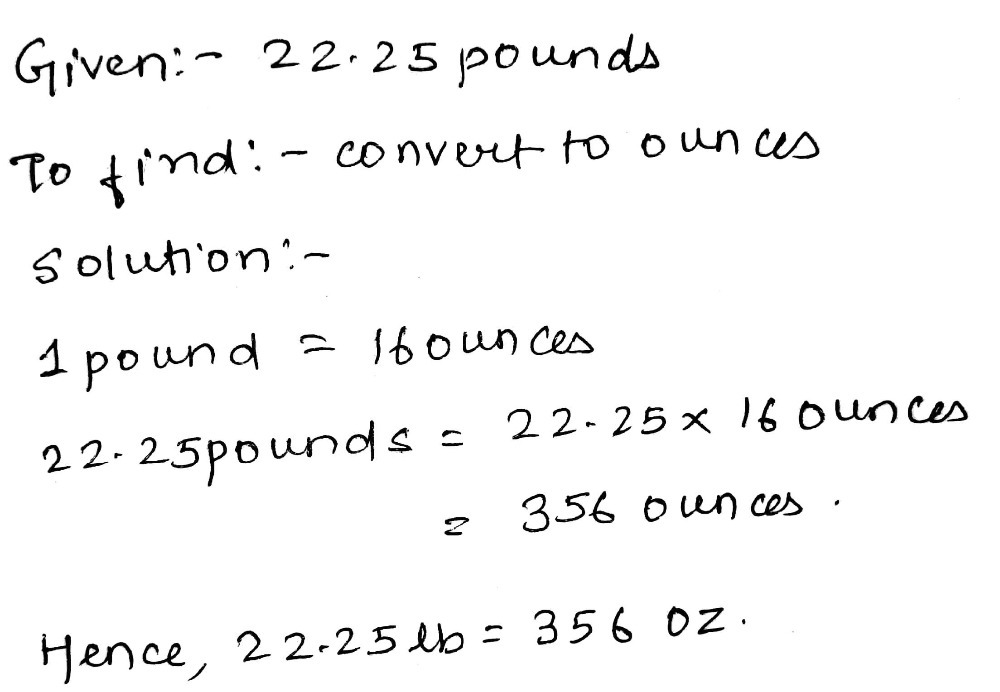 Given:- 22.25 pounds
To find:- convert to ounces
solution:-
1 pound = 16 ounces
22.25pounds = 22.25 x 16 ounces
= 356 ounces.
Hence, 22.25 lb = 356 oz.